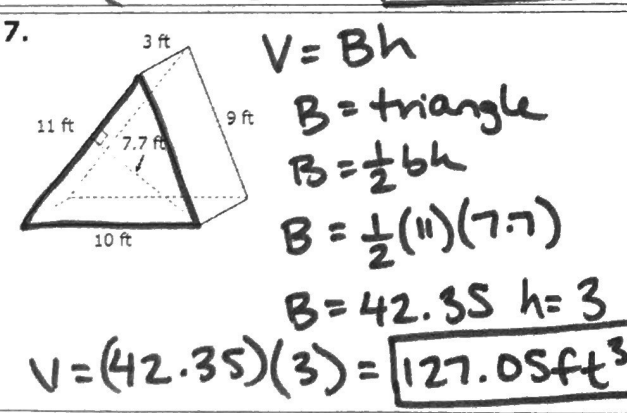 7.
3 ft
11 ft
7.7 ft
9 ft
10 ft
V = Bh
B = triangle
B = 1/2 bh
B = 1/2 (11)(7.7)
B = 42.35 h = 3
V = (42.35)(3) = 127.05ft³